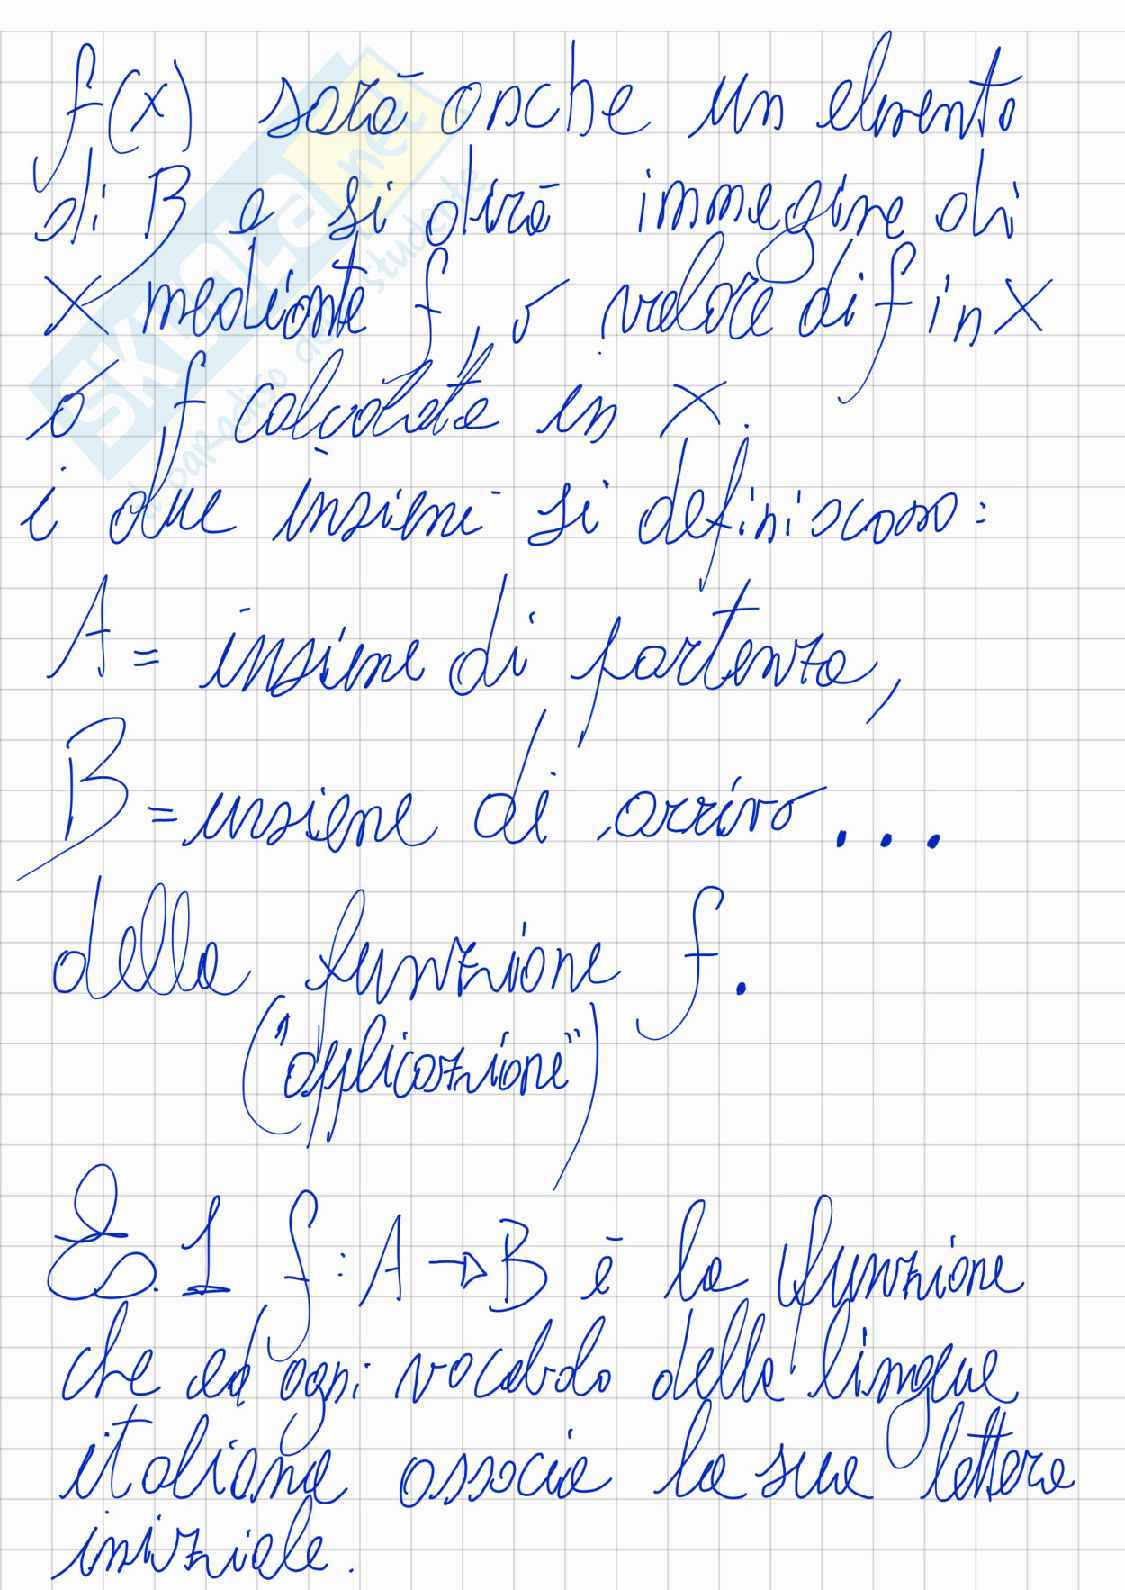 f(x) sarà anche un elemento
di B e si dirà immagine di
x mediante f, o valore di f in x
o f calcolata in x.
i due insiemi si definiscono:
A = insieme di partenza,
B = insieme di arrivo...
della funzione f.
("applicazione")
Es. 1 f: A → B è la funzione
che ad ogni vocabolo della lingua
italiana associa la sua lettera
iniziale.
SKUOLA.net
il paradiso dello studente